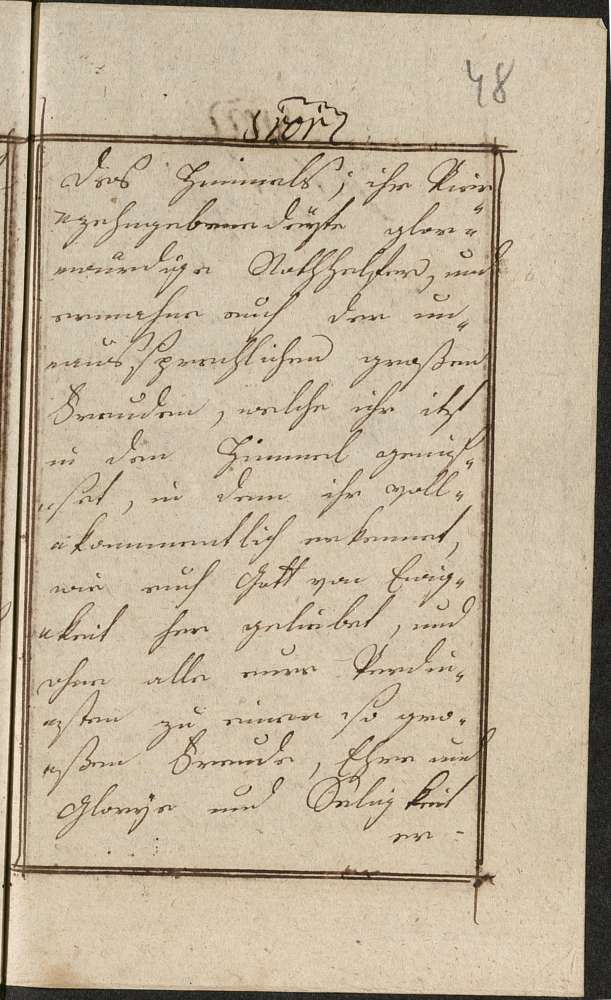 48
des Himmels, ihr Vier„
„zehngebenedeyte glor„
würdige Nothhelfer, und
ermahne euch der un„
„aussprechlichen großen
Freuden, welche ihr itzt
in dem Himmel genies„
„set, in dem ihr voll„
„kommentlich erkennet,
wie euch Gott von Ewig„
„keit her geliebet, und
ohne alle eure Verdin„
„sten zu einer so gro„
„ßen Freude, Ehre und
Glorye und Seligkeit
er-